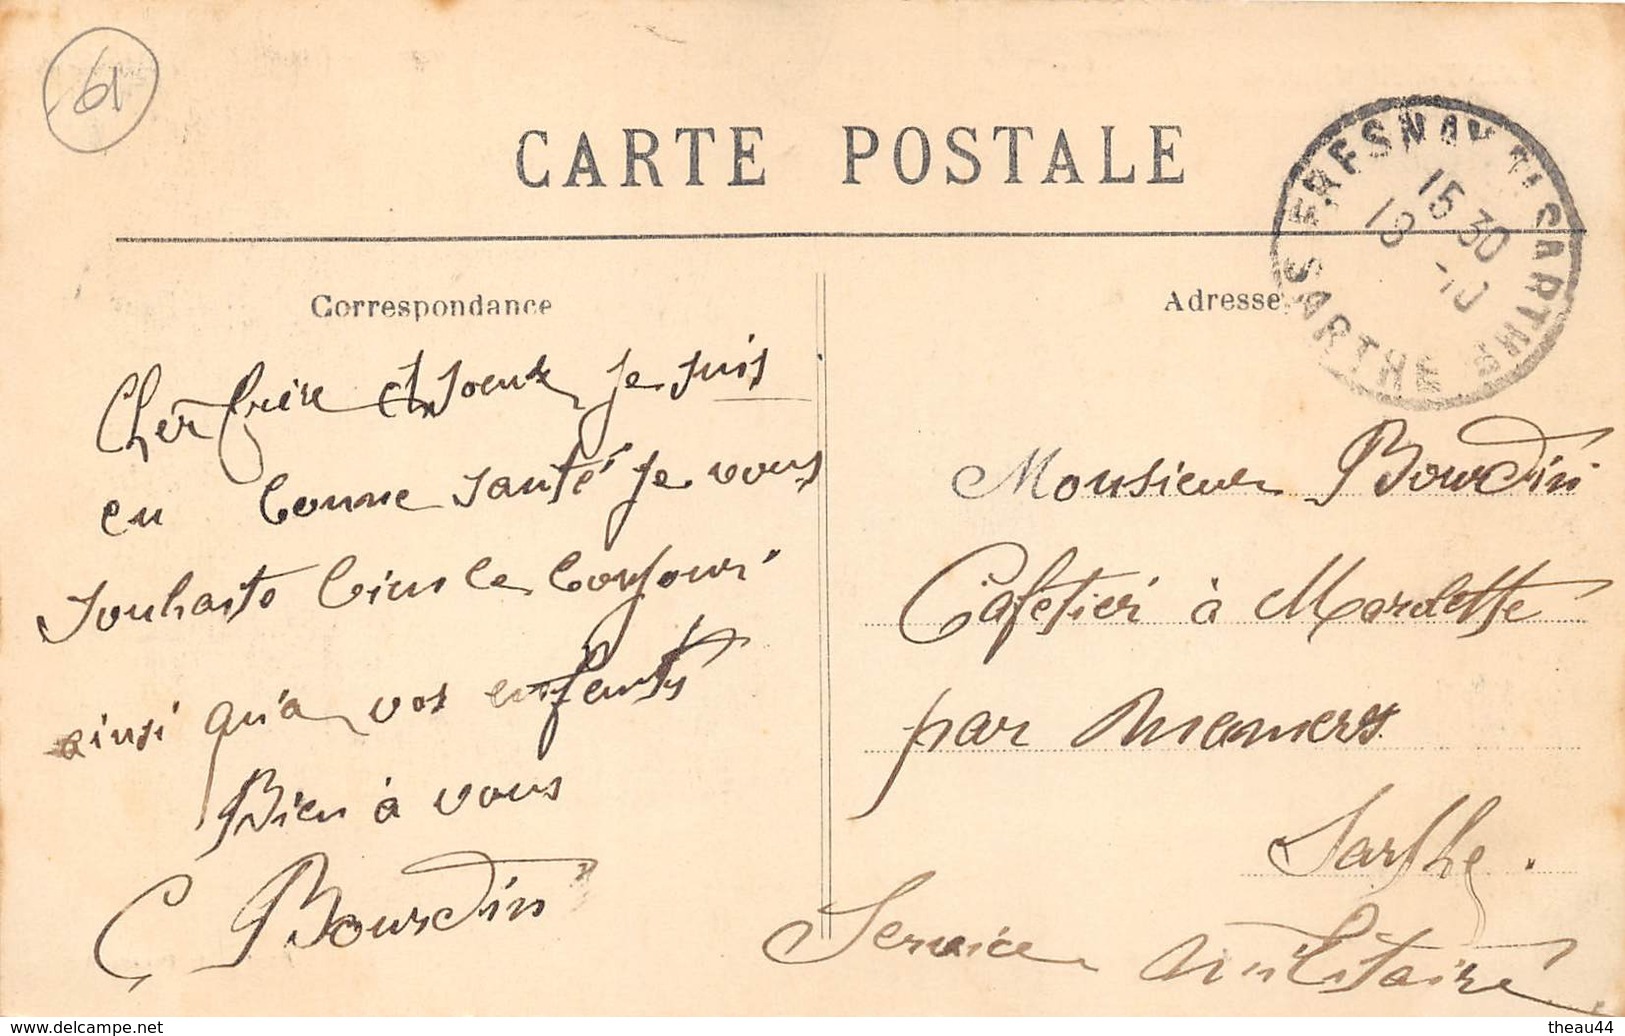 61
CARTE POSTALE
FRESNAY S/ SARTHE
15 30
13 -10
SARTHE
Correspondance
Adresse
Cher frère et soeur je suis
en bonne santé je vous
souhaite bien le bonjour
ainsi qu'a vos enfants
Bien à vous
C Bourdin
Monsieur Bourdin
Cafetier à Marolette
par Mamers
Sarthe.
Service Militaire
theau44